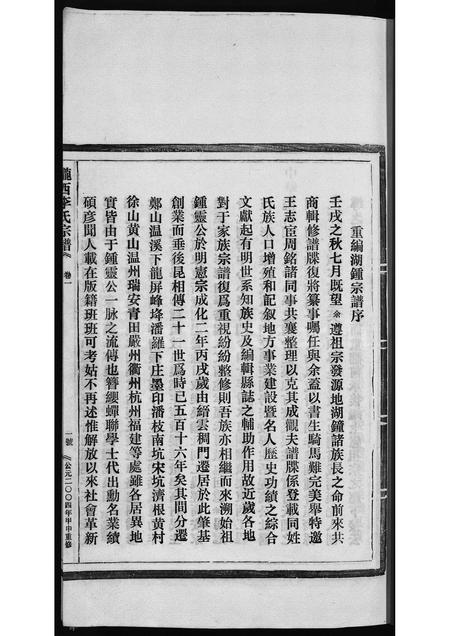 重編湖鍾宗譜序
壬戌之秋七月既望余遵祖宗發源地湖鐘諸族長之命前來共
商輯修譜牒復將纂事囑任與余蓋以書生騎馬難完美舉特邀
王志宦周銘諸同事共襄整理以克其成觀夫譜牒係登載同姓
氏族人口增殖和記叙地方事業建設暨名人歷史功績之綜合
文獻起有明世系知族史及编輯縣誌之輔助作用故近歲各地
對于家族宗譜復爲重視紛紛整修則吾族亦相繼而來溯始祖
鍾靈公於明憲宗成化二年丙戌歲由縉雲稠門遷居於此肇基
創業而垂後昆相傳二十一世爲時已五百十六年矣其間分遷
鄭山温溪下龍屏峰埄潘羅下庄墨印潘枝南坑宋坑濟根黄村
徐山黄山温州瑞安青田嚴州衢州杭州福建等處雖各居異地
實皆由于鍾靈公一脉之流傳也簪纓蟬聯學士代出勳名業績
碩彦聞人載在版籍班班可考姑不再述惟解放以來社會革新
隴西李氏宗譜
卷一
一號
公元二〇〇四年甲申重修